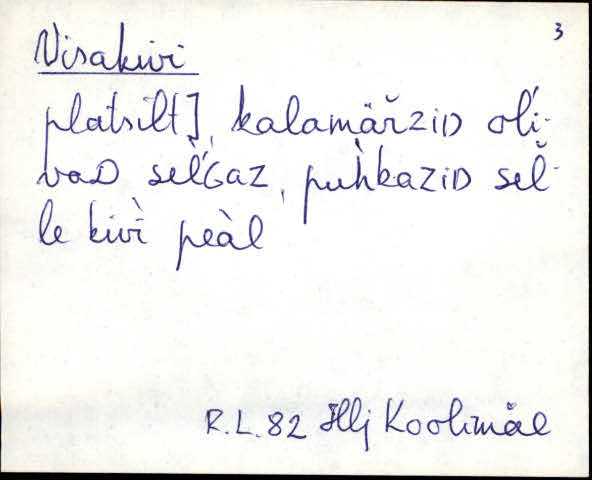 3
Visakivi
platsilt], kalamäřziD oĺi-
vaD seĺGaz, puh̀kaziD seĺ-
le kivì peàl
R.L. 82 Hlj Koolimäe